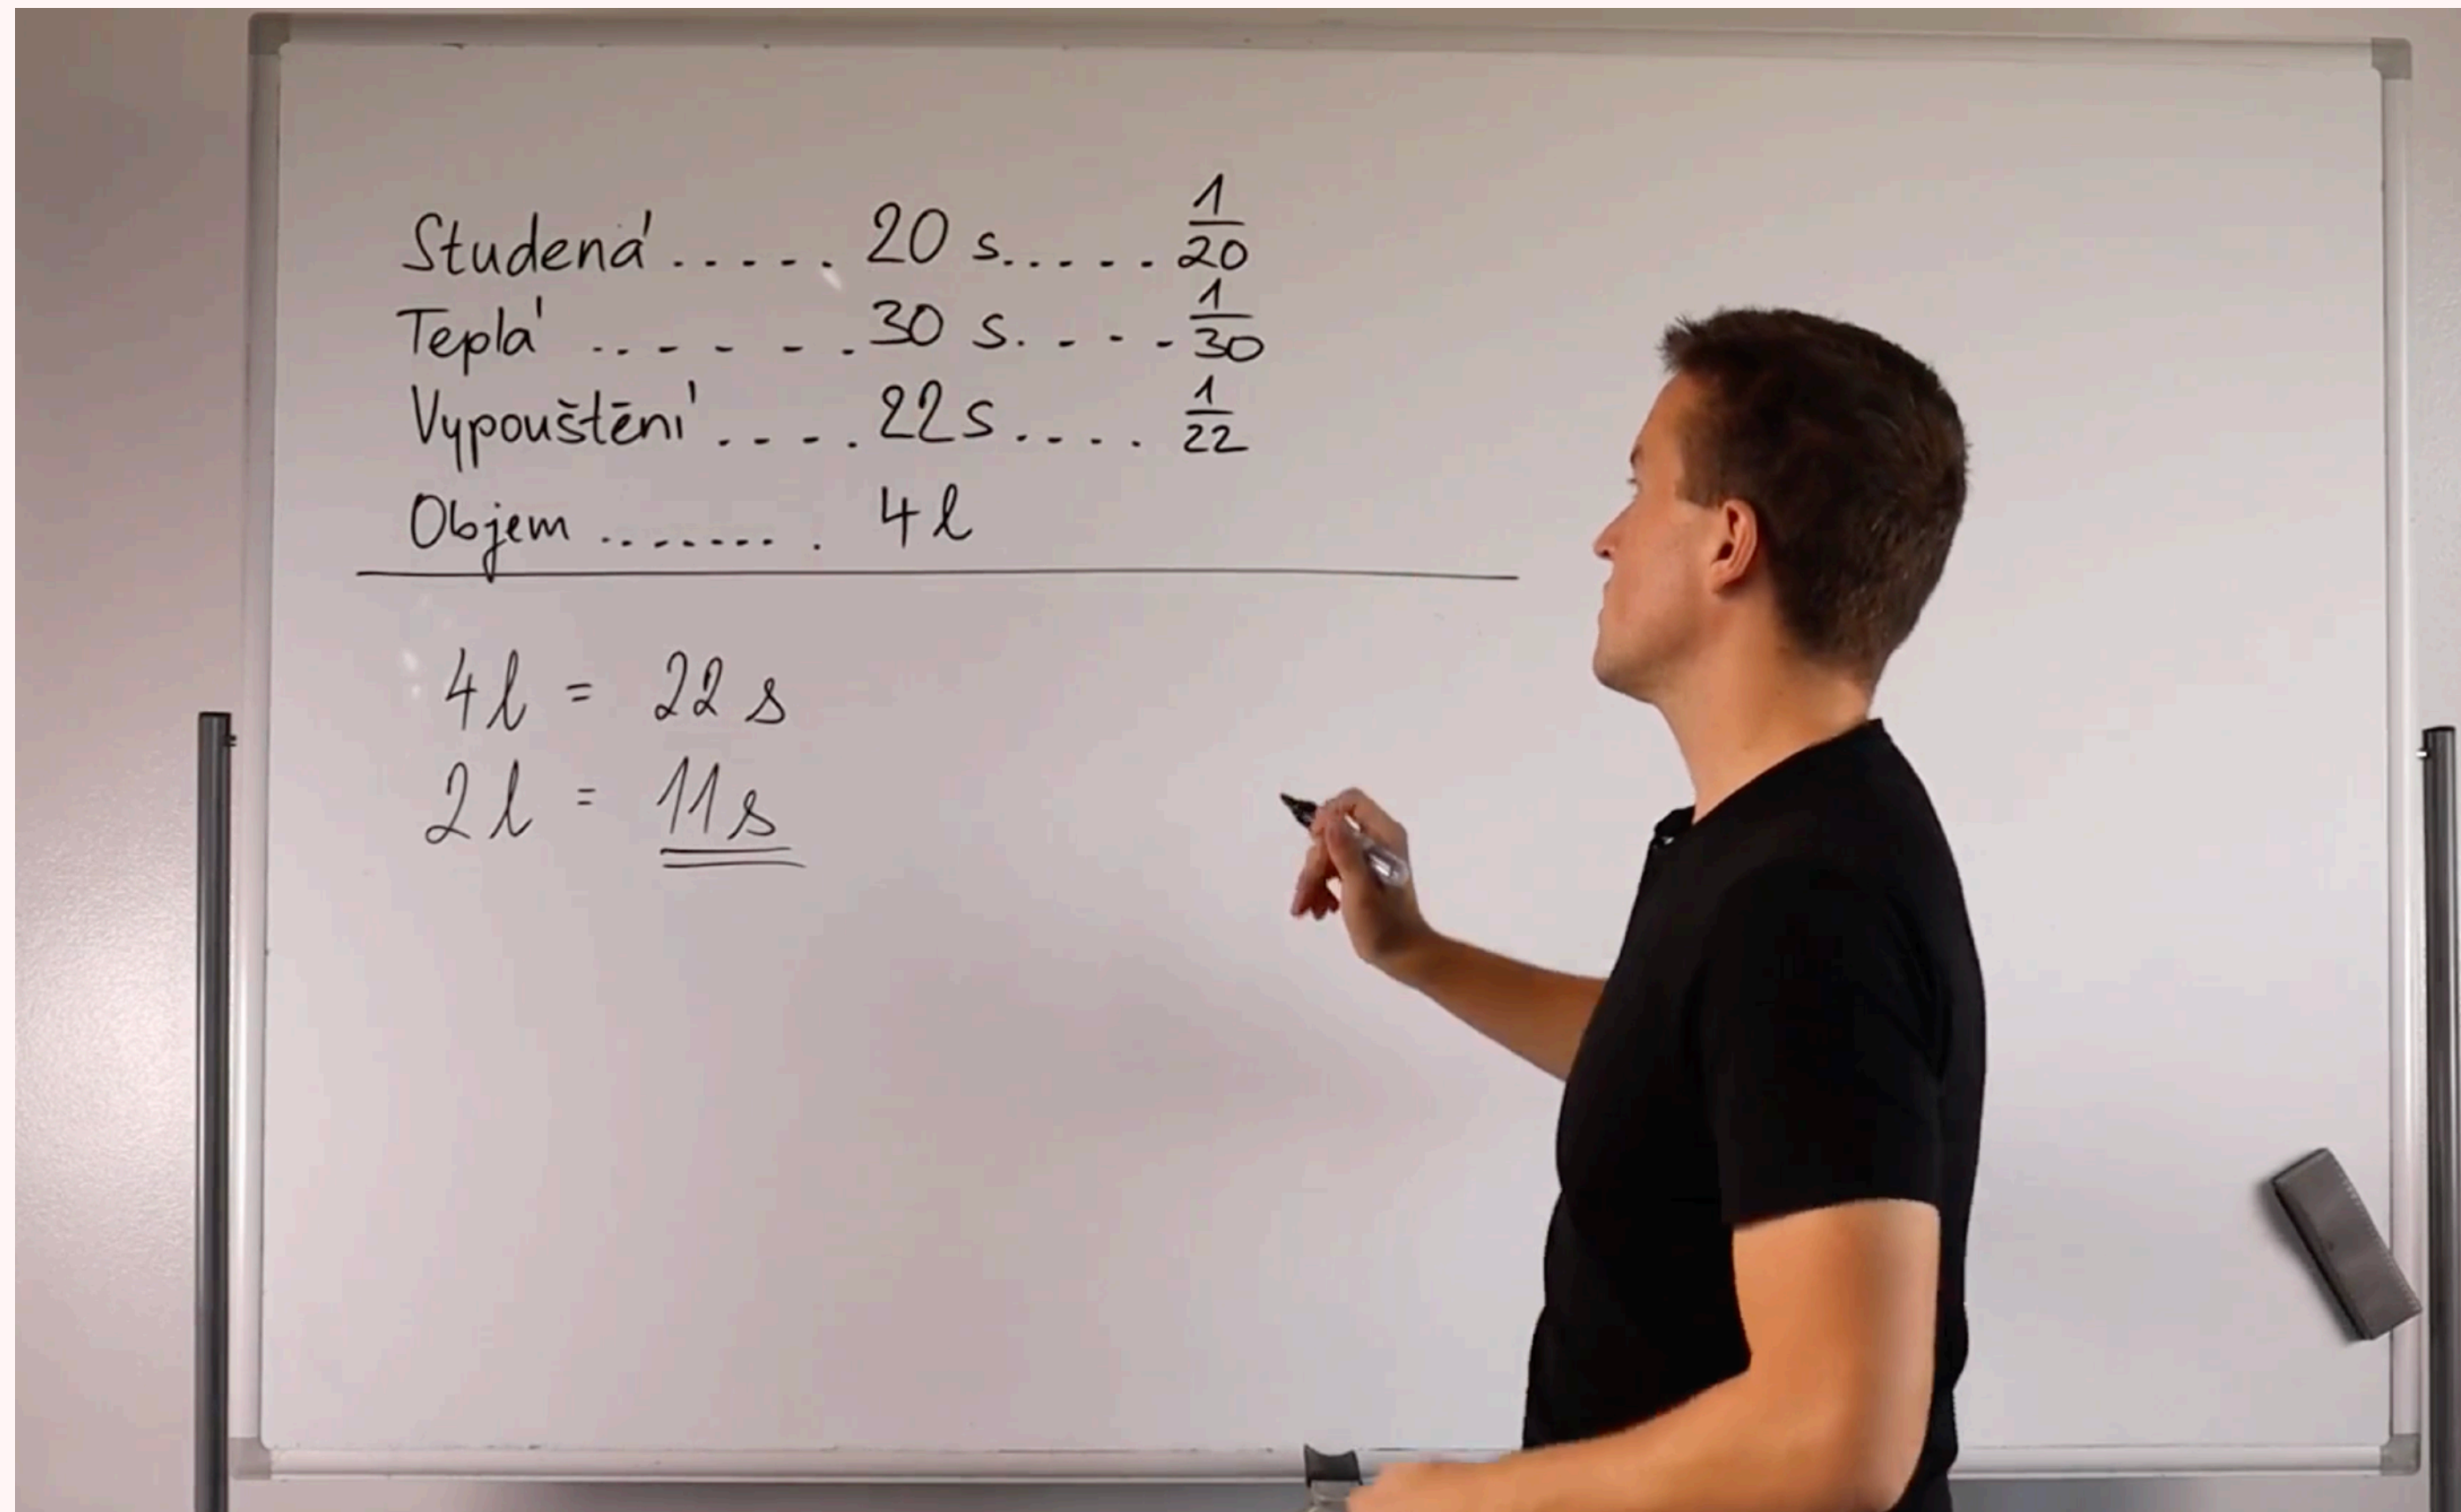 Studená ..... 20 s..... 1/20
Teplá ...... 30 s.... 1/30
Vypouštění .... 22 s.... 1/22
Objem ........ 4 l
4 l = 22 s
2 l = 11 s